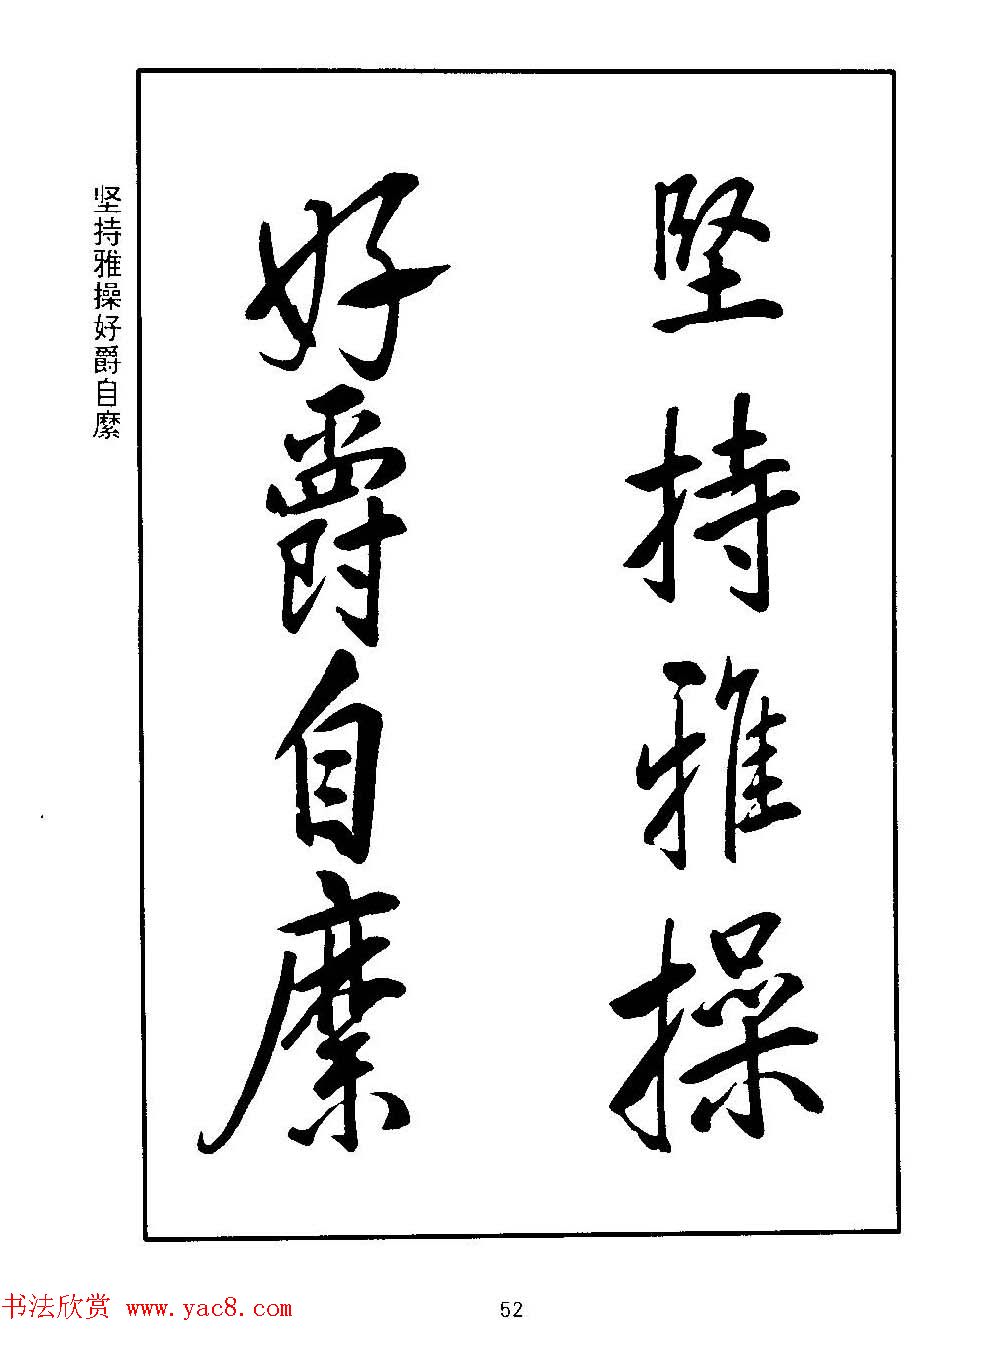 坚持雅操
好爵自縻
坚持雅操好爵自縻
书法欣赏 www.yac8.com
52